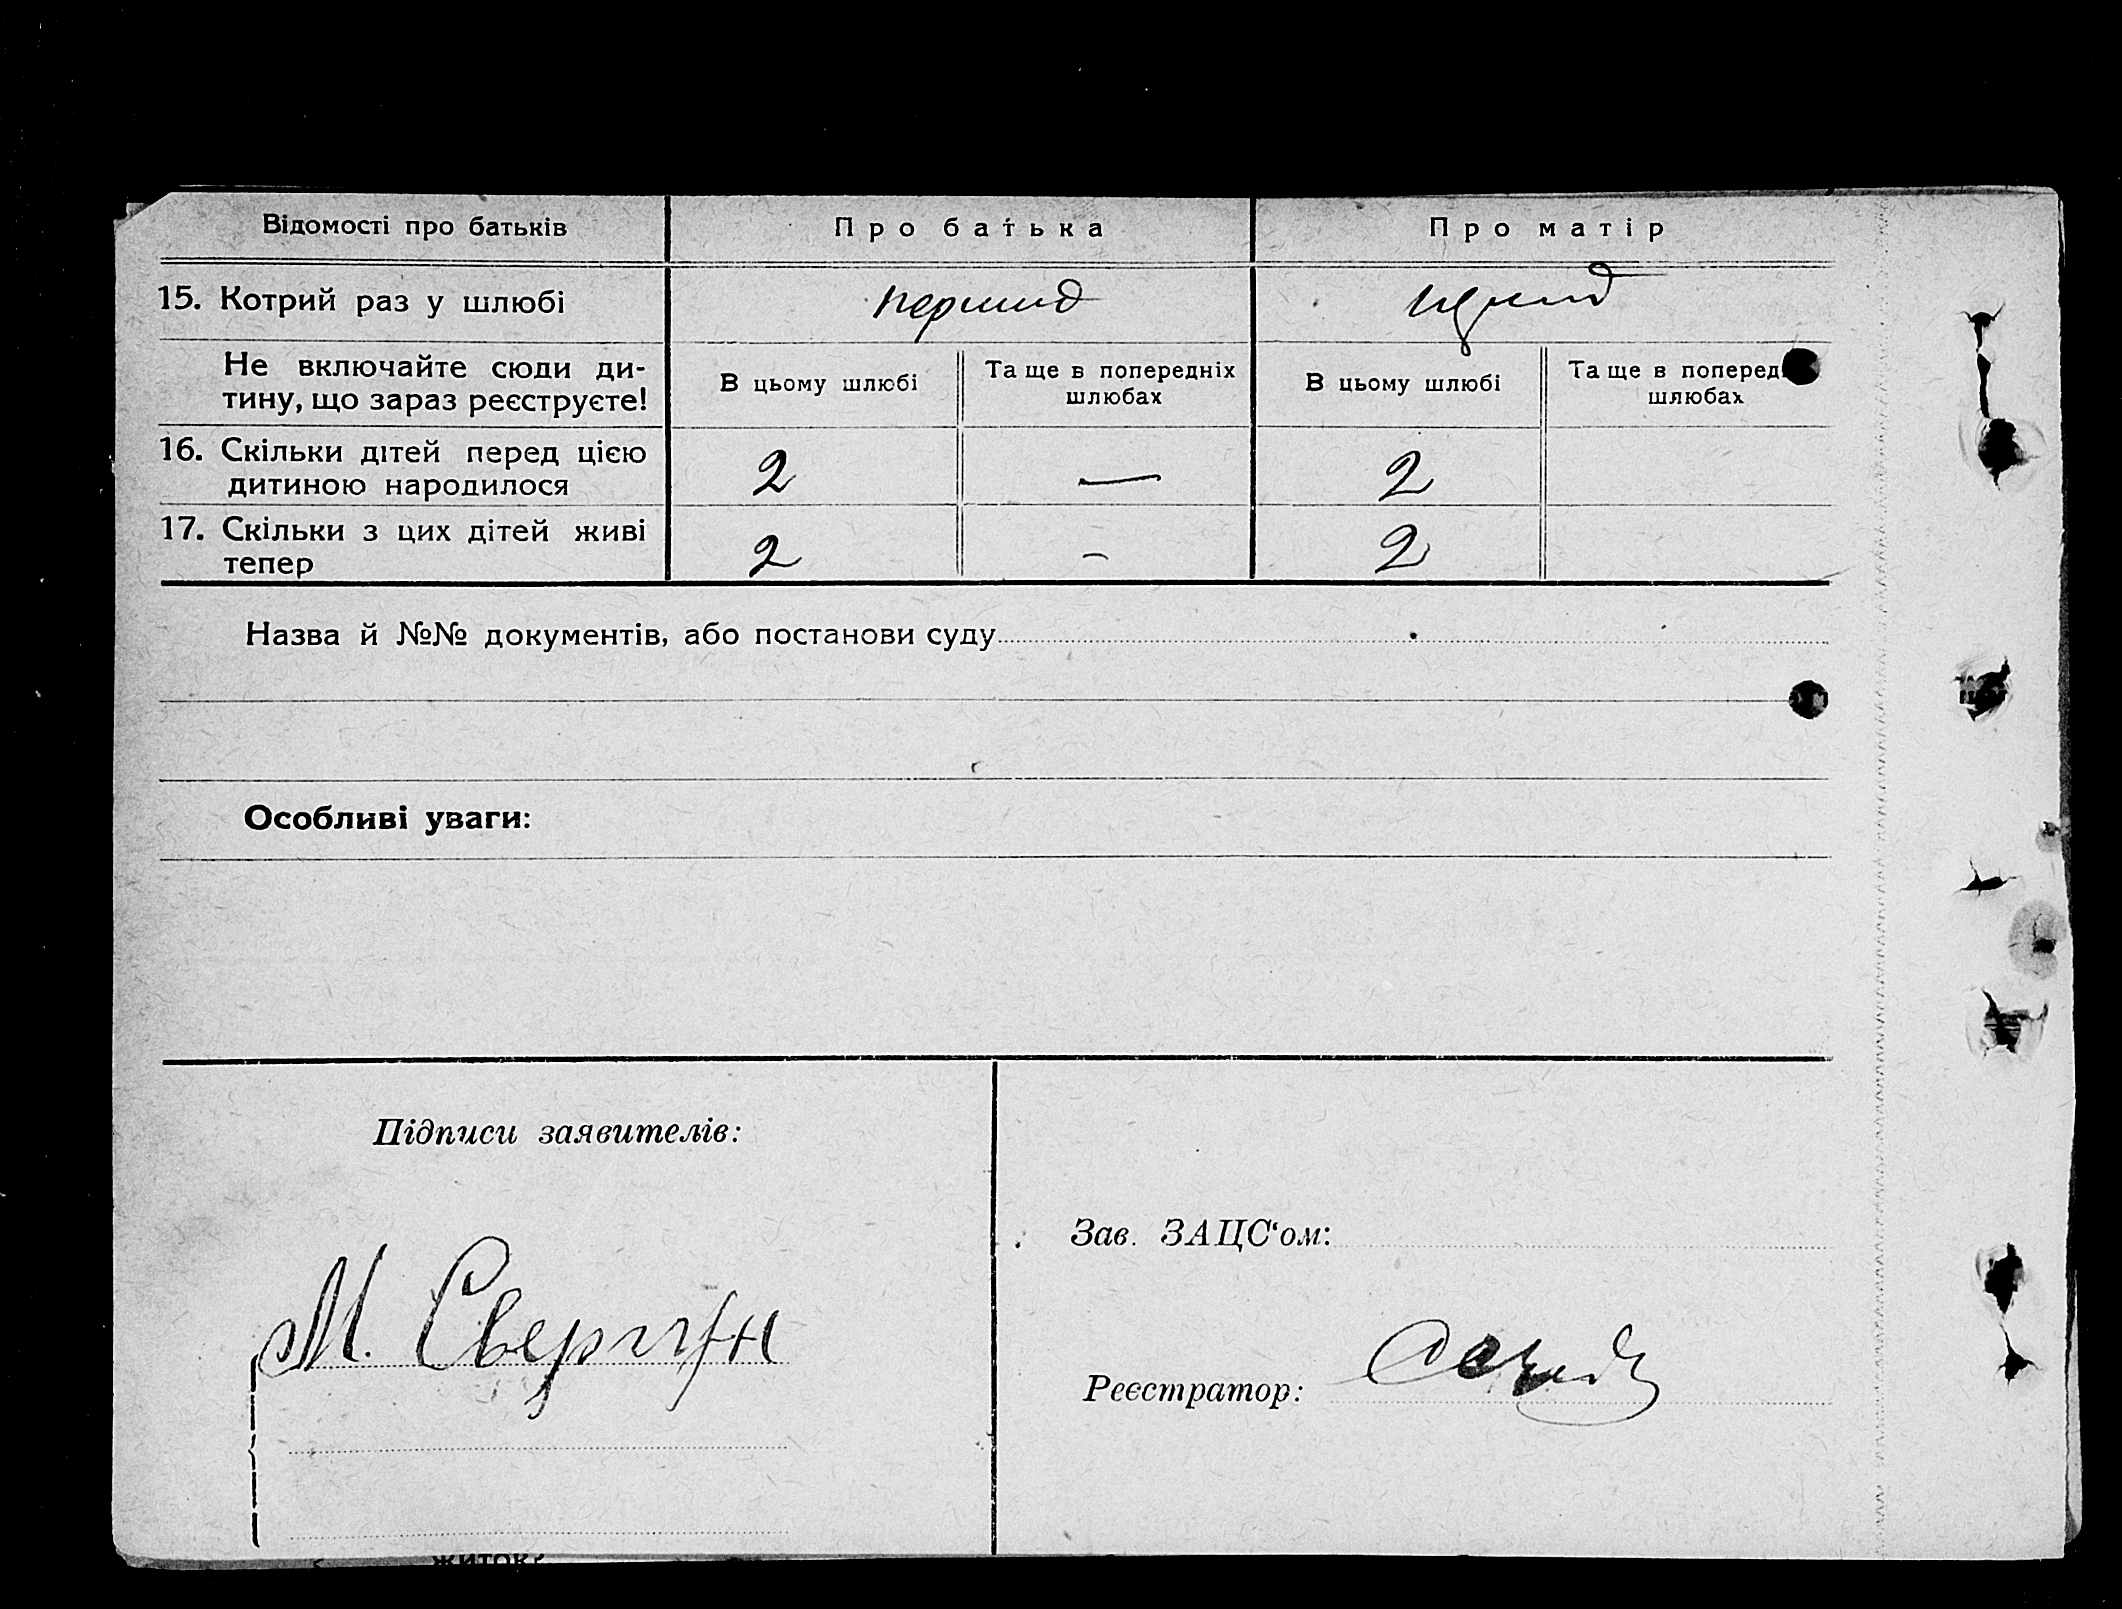 Відомості про батьків
Про батька
Про матір
15. Котрий раз у шлюбі
перший
Не включайте сюди ди-
тину, що зараз реєструєте!
В цьому шлюбі
Та ще в попередніх
шлюбах
В цьому шлюбі
Та ще в поперед
шлюбах
16. Скільки дітей перед цією
дитиною народилося
2
—
2
17. Скільки з цих дітей живі
тепер
2
-
2
Назва й №№ документів, або постанови суду
Особливі уваги:
Підписи заявителів:
М.
Зав. ЗАЦС‘ом:
Реєстратор: